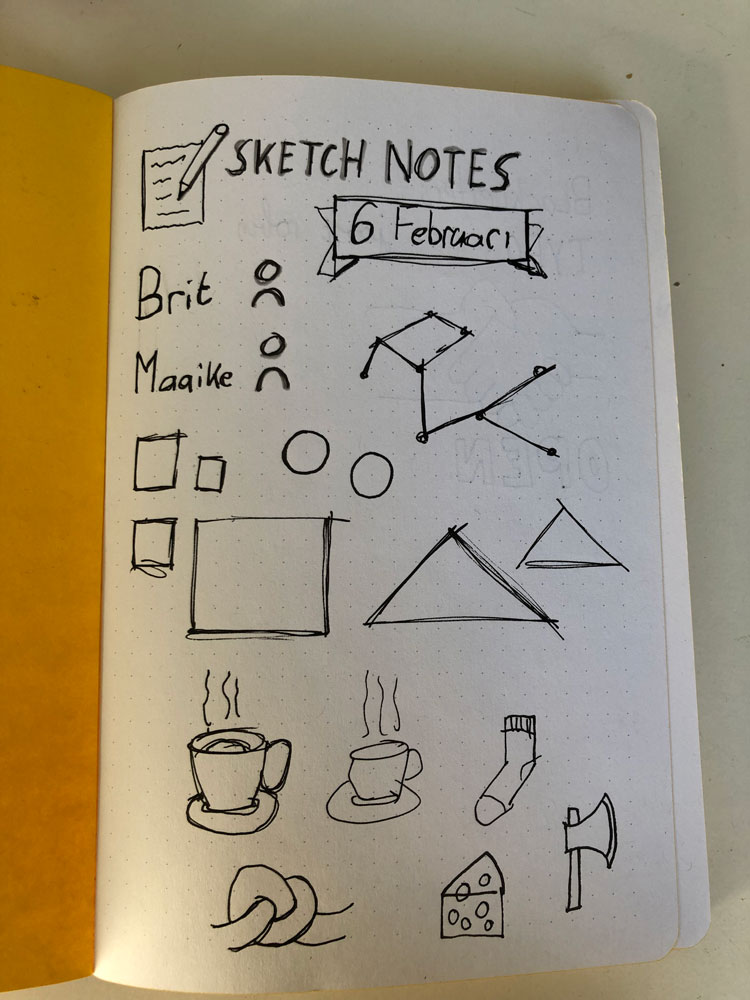 SKETCH NOTES
6 Februari
Brit
Maaike
OPEN